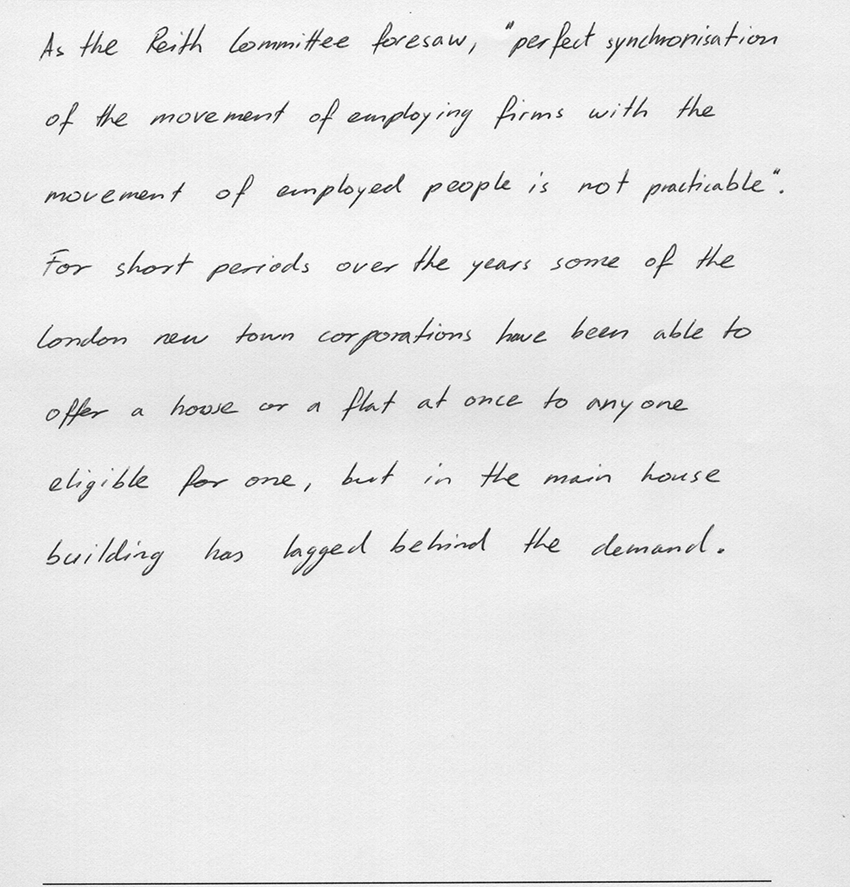 As the Reith Committee foresaw, "perfect synchronisation
of the movement of employing firms with the
movement of employed people is not practicable".
For short periods over the years some of the
London new town corporations have been able to
offer a house or a flat at once to anyone
eligible for one, but in the main house
building has lagged behind the demand.